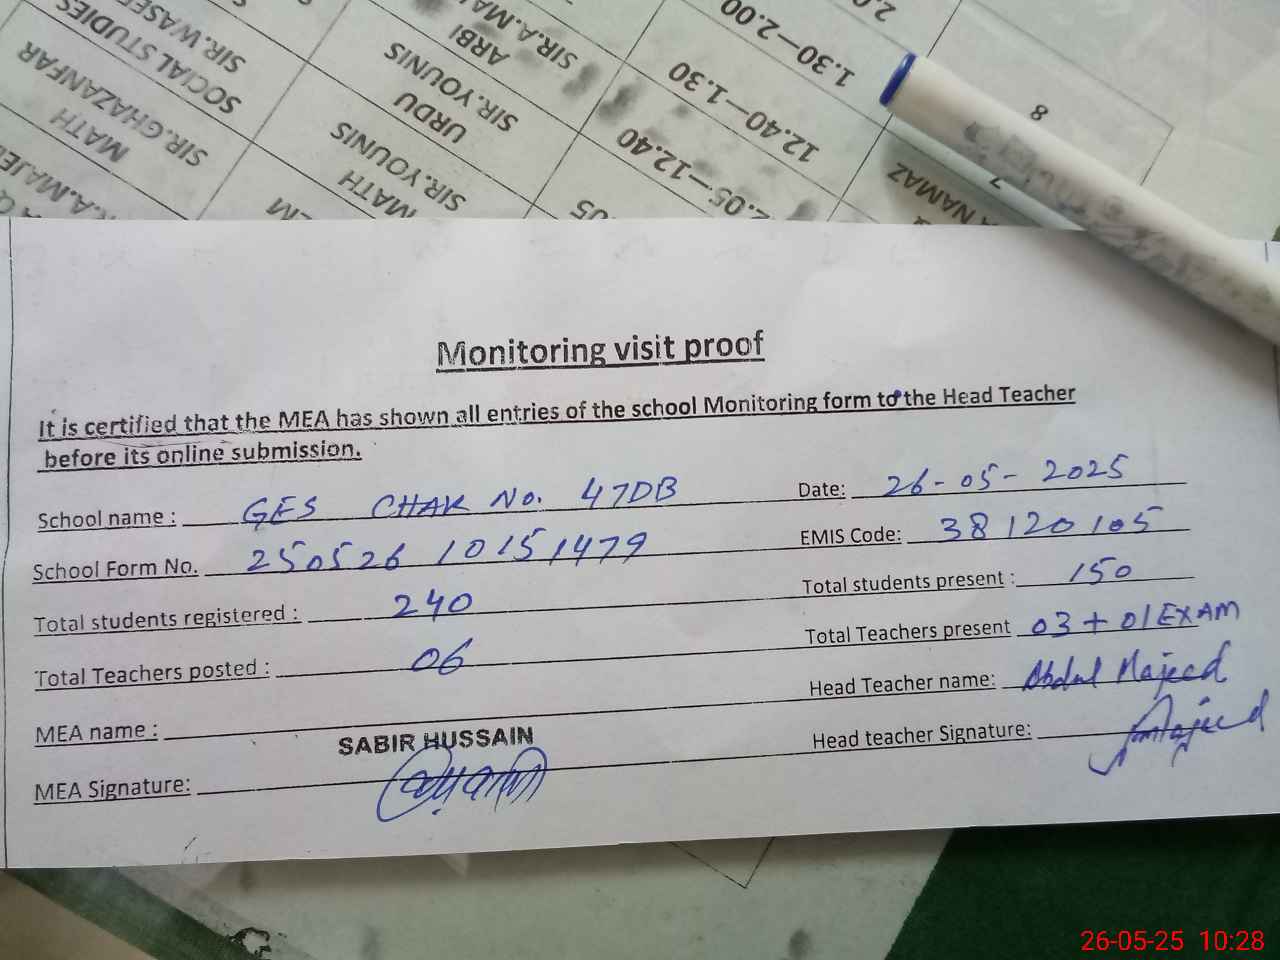 SIR.WASE
SOCIAL STUDIES
SIR.GHAZANFAR
MATH
SIR.A.MA
ARBI
SIR.YOUNIS
URDU
SIR.YOUNIS
MATH
1.30—2.00
12.40—1.30
2.05—12.40
8
7
NAMAZ
Monitoring visit proof
It is certified that the MEA has shown all entries of the school Monitoring form to the Head Teacher
before its online submission.
School name : GES CHAK No. 47DB Date: 26-05-2025
School Form No. 250526 10151479 EMIS Code: 38120105
Total students registered : 240 Total students present : 150
Total Teachers posted : 06 Total Teachers present 03 + 01 EXAM
MEA name : SABIR HUSSAIN Head Teacher name: Abdul Majeed
MEA Signature: Head teacher Signature: Majeed
26-05-25 10:28